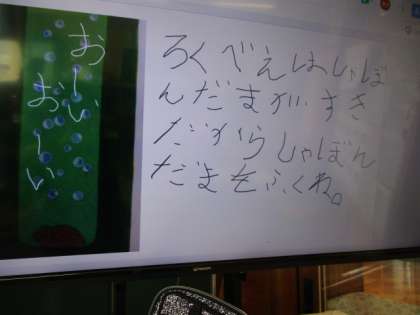 おーい
おーい
ろくべえはしゃぼ
んだまがすき
だからしゃぼん
だまをふくね。